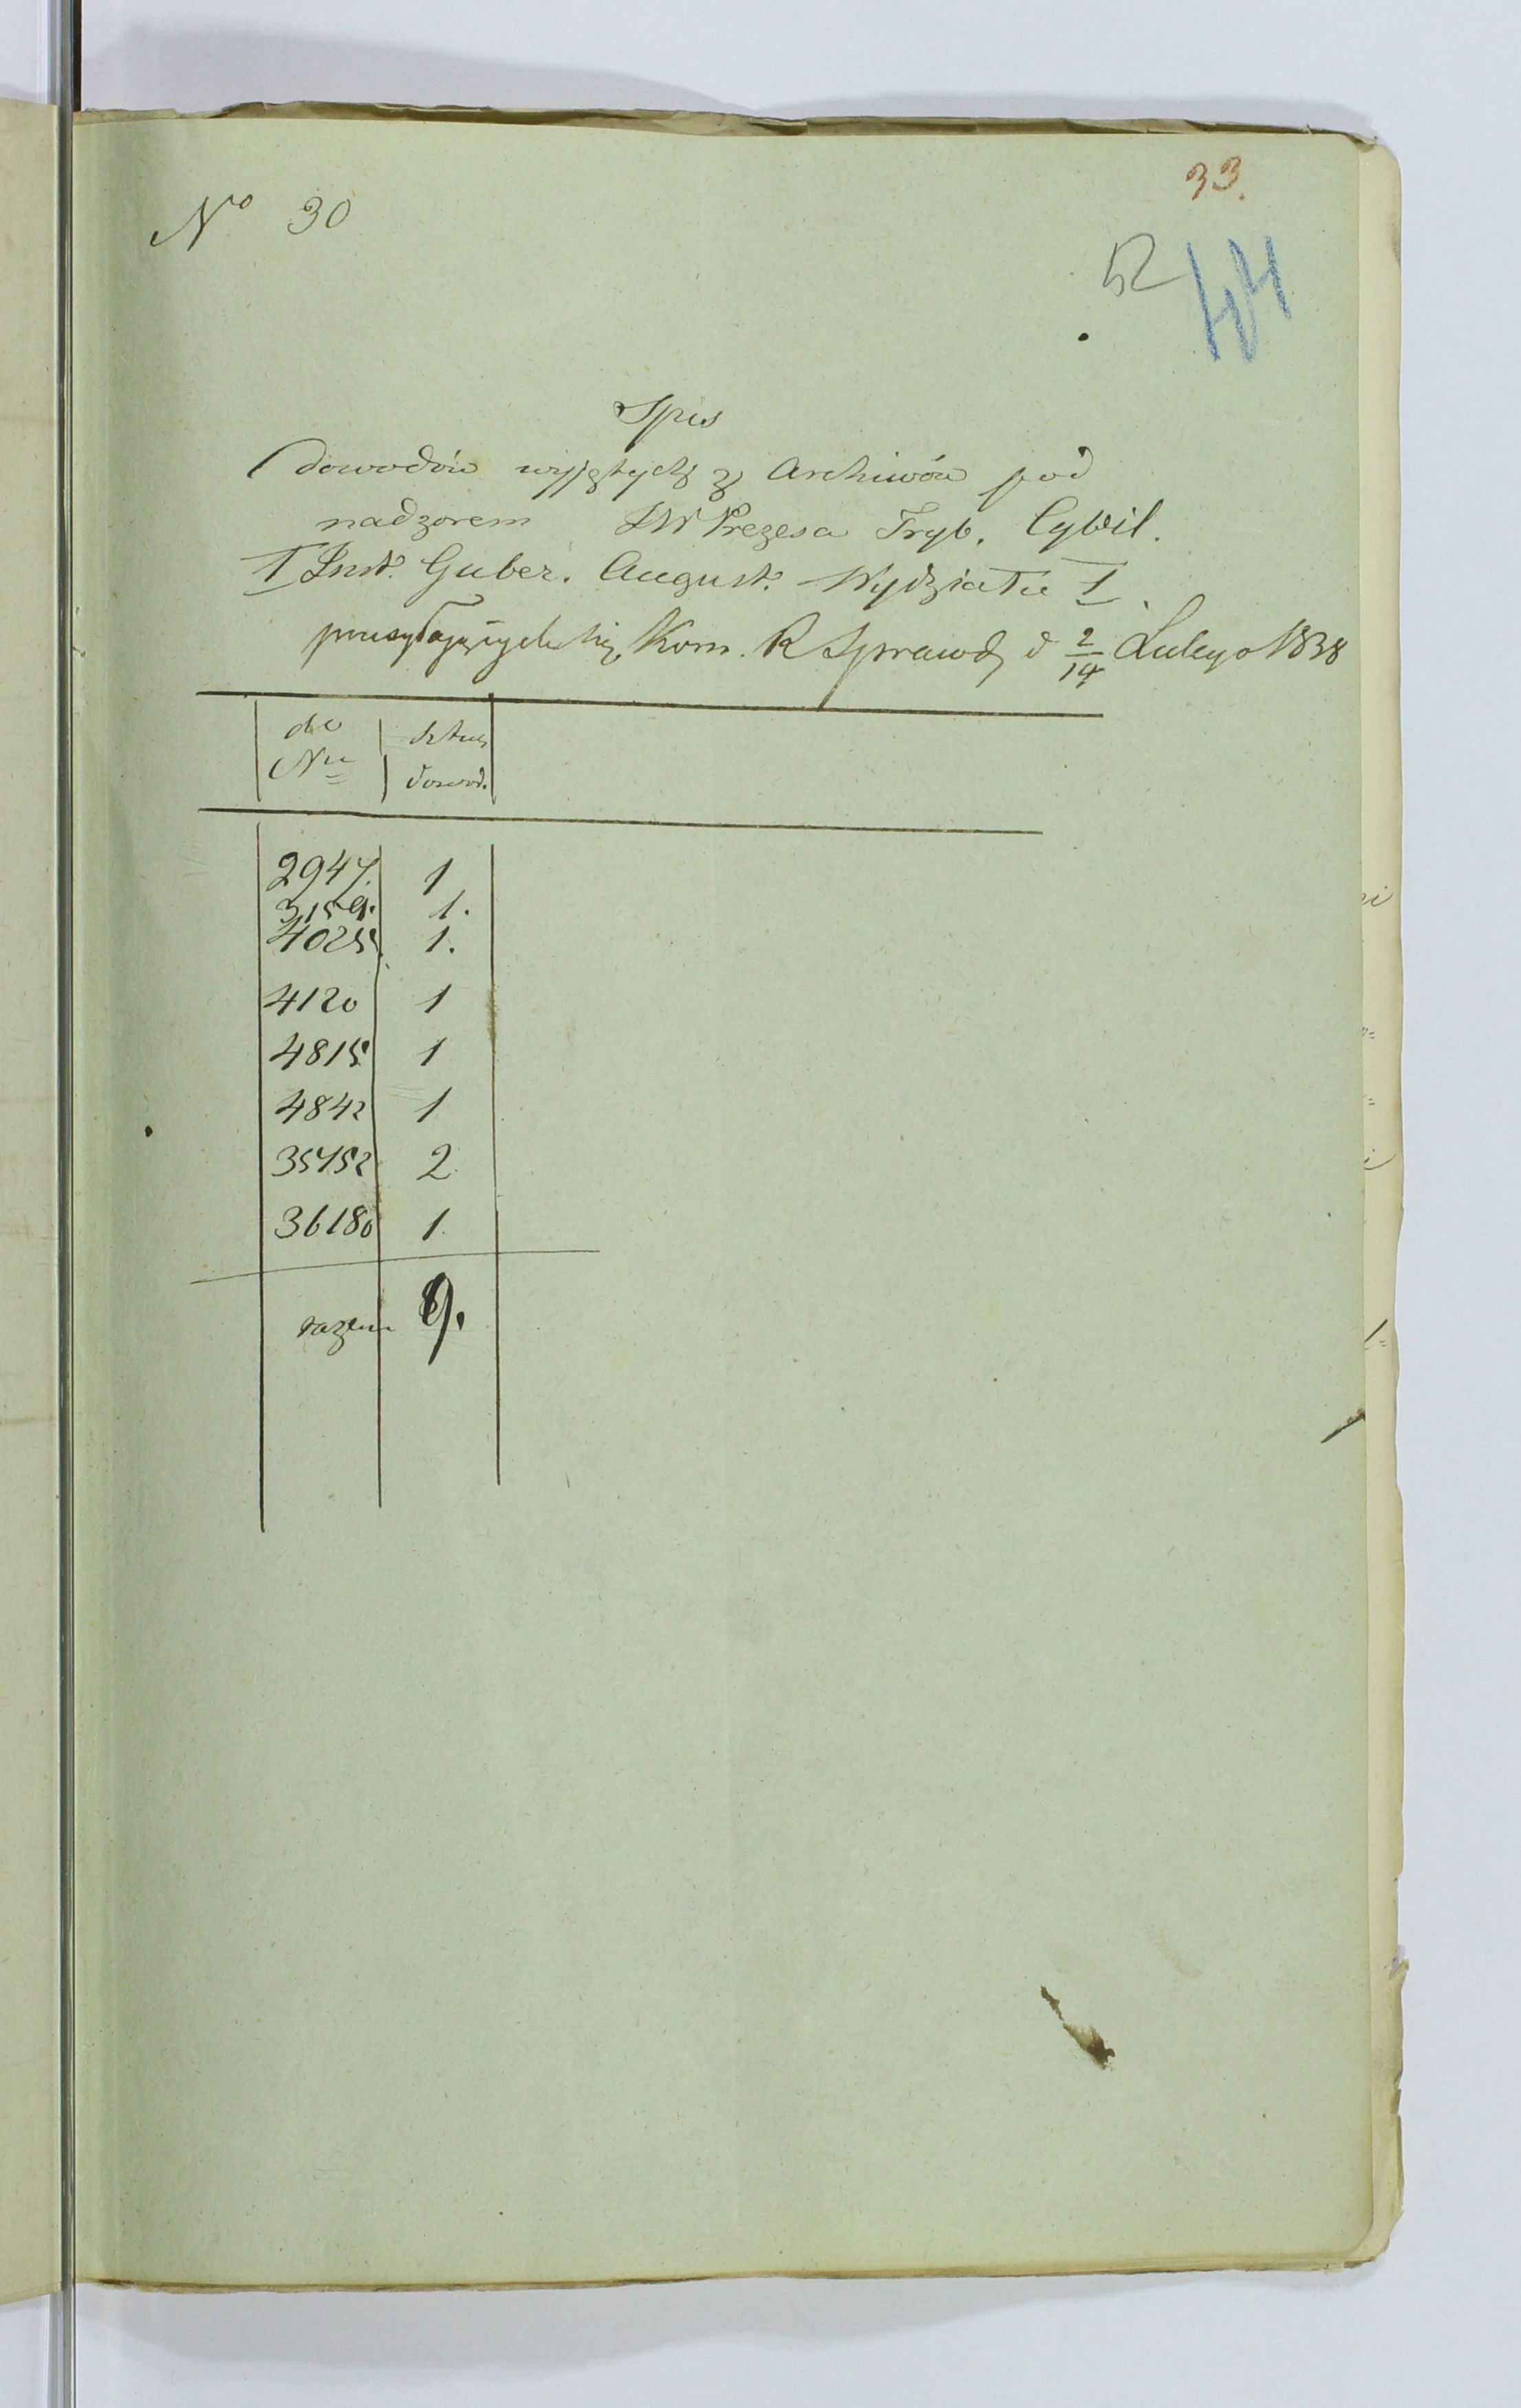 33.
No 30
52 44
Spis
dowodów wyjętych z Archiwów pod
nadzorem JW Prezesa Tryb. Cywil.
I Inst. Guber. August. Wydziału I.
przesyłających się Kom. R Sprawd d 2/14 Lutego 1838
do sztuk
Nru dowod.
2947. 1
3159. 1.
4025. 1.
4120 1
4815 1
4842 1
35752 2
36180 1.
razem 9.